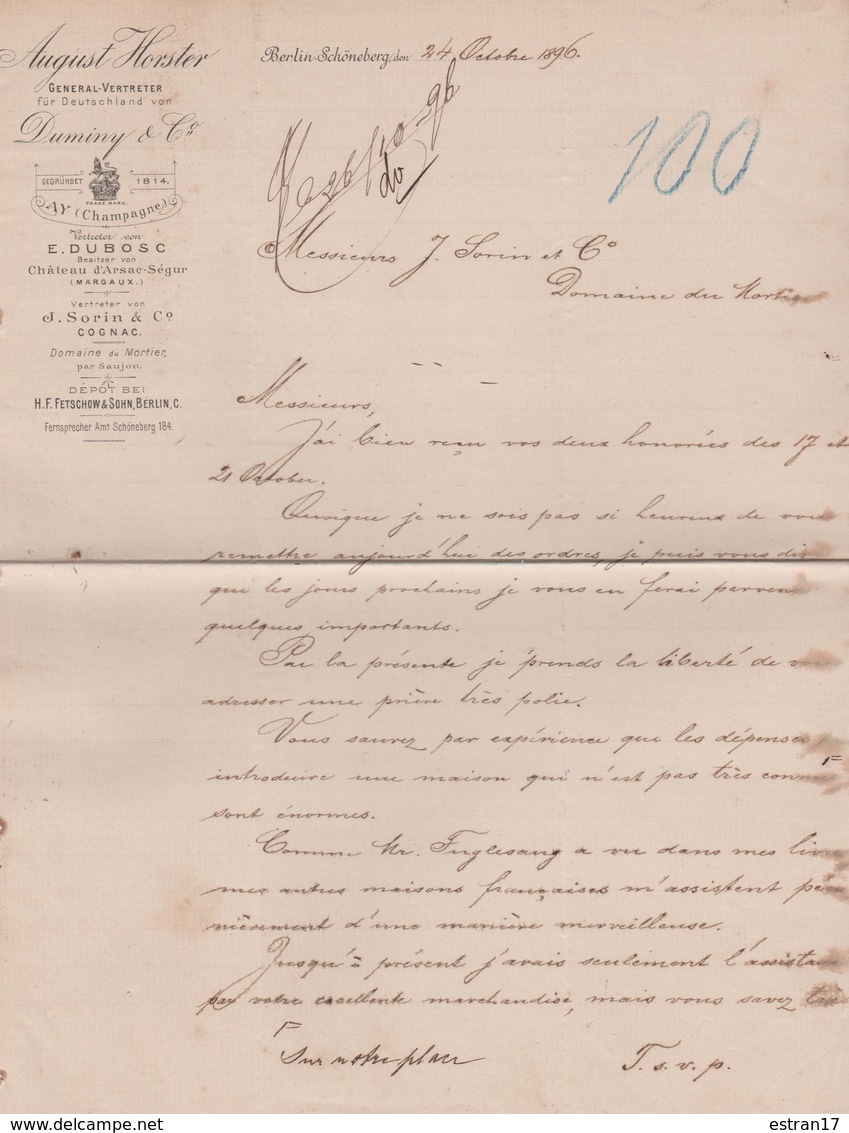 August Horster
GENERAL-VERTRETER
für Deutschland von
Duminy & Co
GEGRÜNDET 1814.
TRADE MARK.
AY (Champagne)
Vertreter von
E. DUBOSC
Besitzer von
Château d'Arsac-Ségur
(MARGAUX.)
Vertreter von
J. Sorin & Co
COGNAC.
Domaine du Mortier,
par Saujon.
DÉPÔT BEI
H. F. FETSCHOW & SOHN, BERLIN, C.
Fernsprecher Amt Schöneberg 184.
Berlin-Schöneberg, den 24 Octobre 1896.
26/10 96
100
Messieurs J. Sorin et Co
Domaine du
Messieurs,
J'ai bien reçu vos deux honorées des 17 et
21 October.
Quoique je ne sois pas si heureux de vous
remettre aujourd'hui des ordres, je puis vous
que les jours prochains je vous en ferai
quelques importants.
Par la présente je prends la liberté de
adresser une prière très polie.
Vous saurez par expérience que les dépenses
introduire une maison qui n'est pas très
sont énormes.
Comme Mr. Fuglesang a vu dans mes
mes autres maisons françaises m'assistent
nièrement d'une manière merveilleuse.
Jusqu'à présent j'avais seulement
par votre excellente marchandise, mais vous savez
sur notre place
T. s. v. p.
delcampe.net
estran17